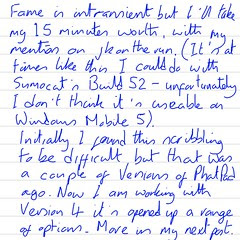 Fame is intransient but I'll take
my 15 minutes worth, with my
mention on jkontherun. (It's at
times like this I could do with
Sumocat's Build 52 - unfortunately
I don't think it's useable on
Windows Mobile 5).
Initially I found this scribbling
to be difficult, but that was
a couple of versions of PhatPad
ago. Now I am working with
Version 4 it's opened up a range
of options. More in my next post.